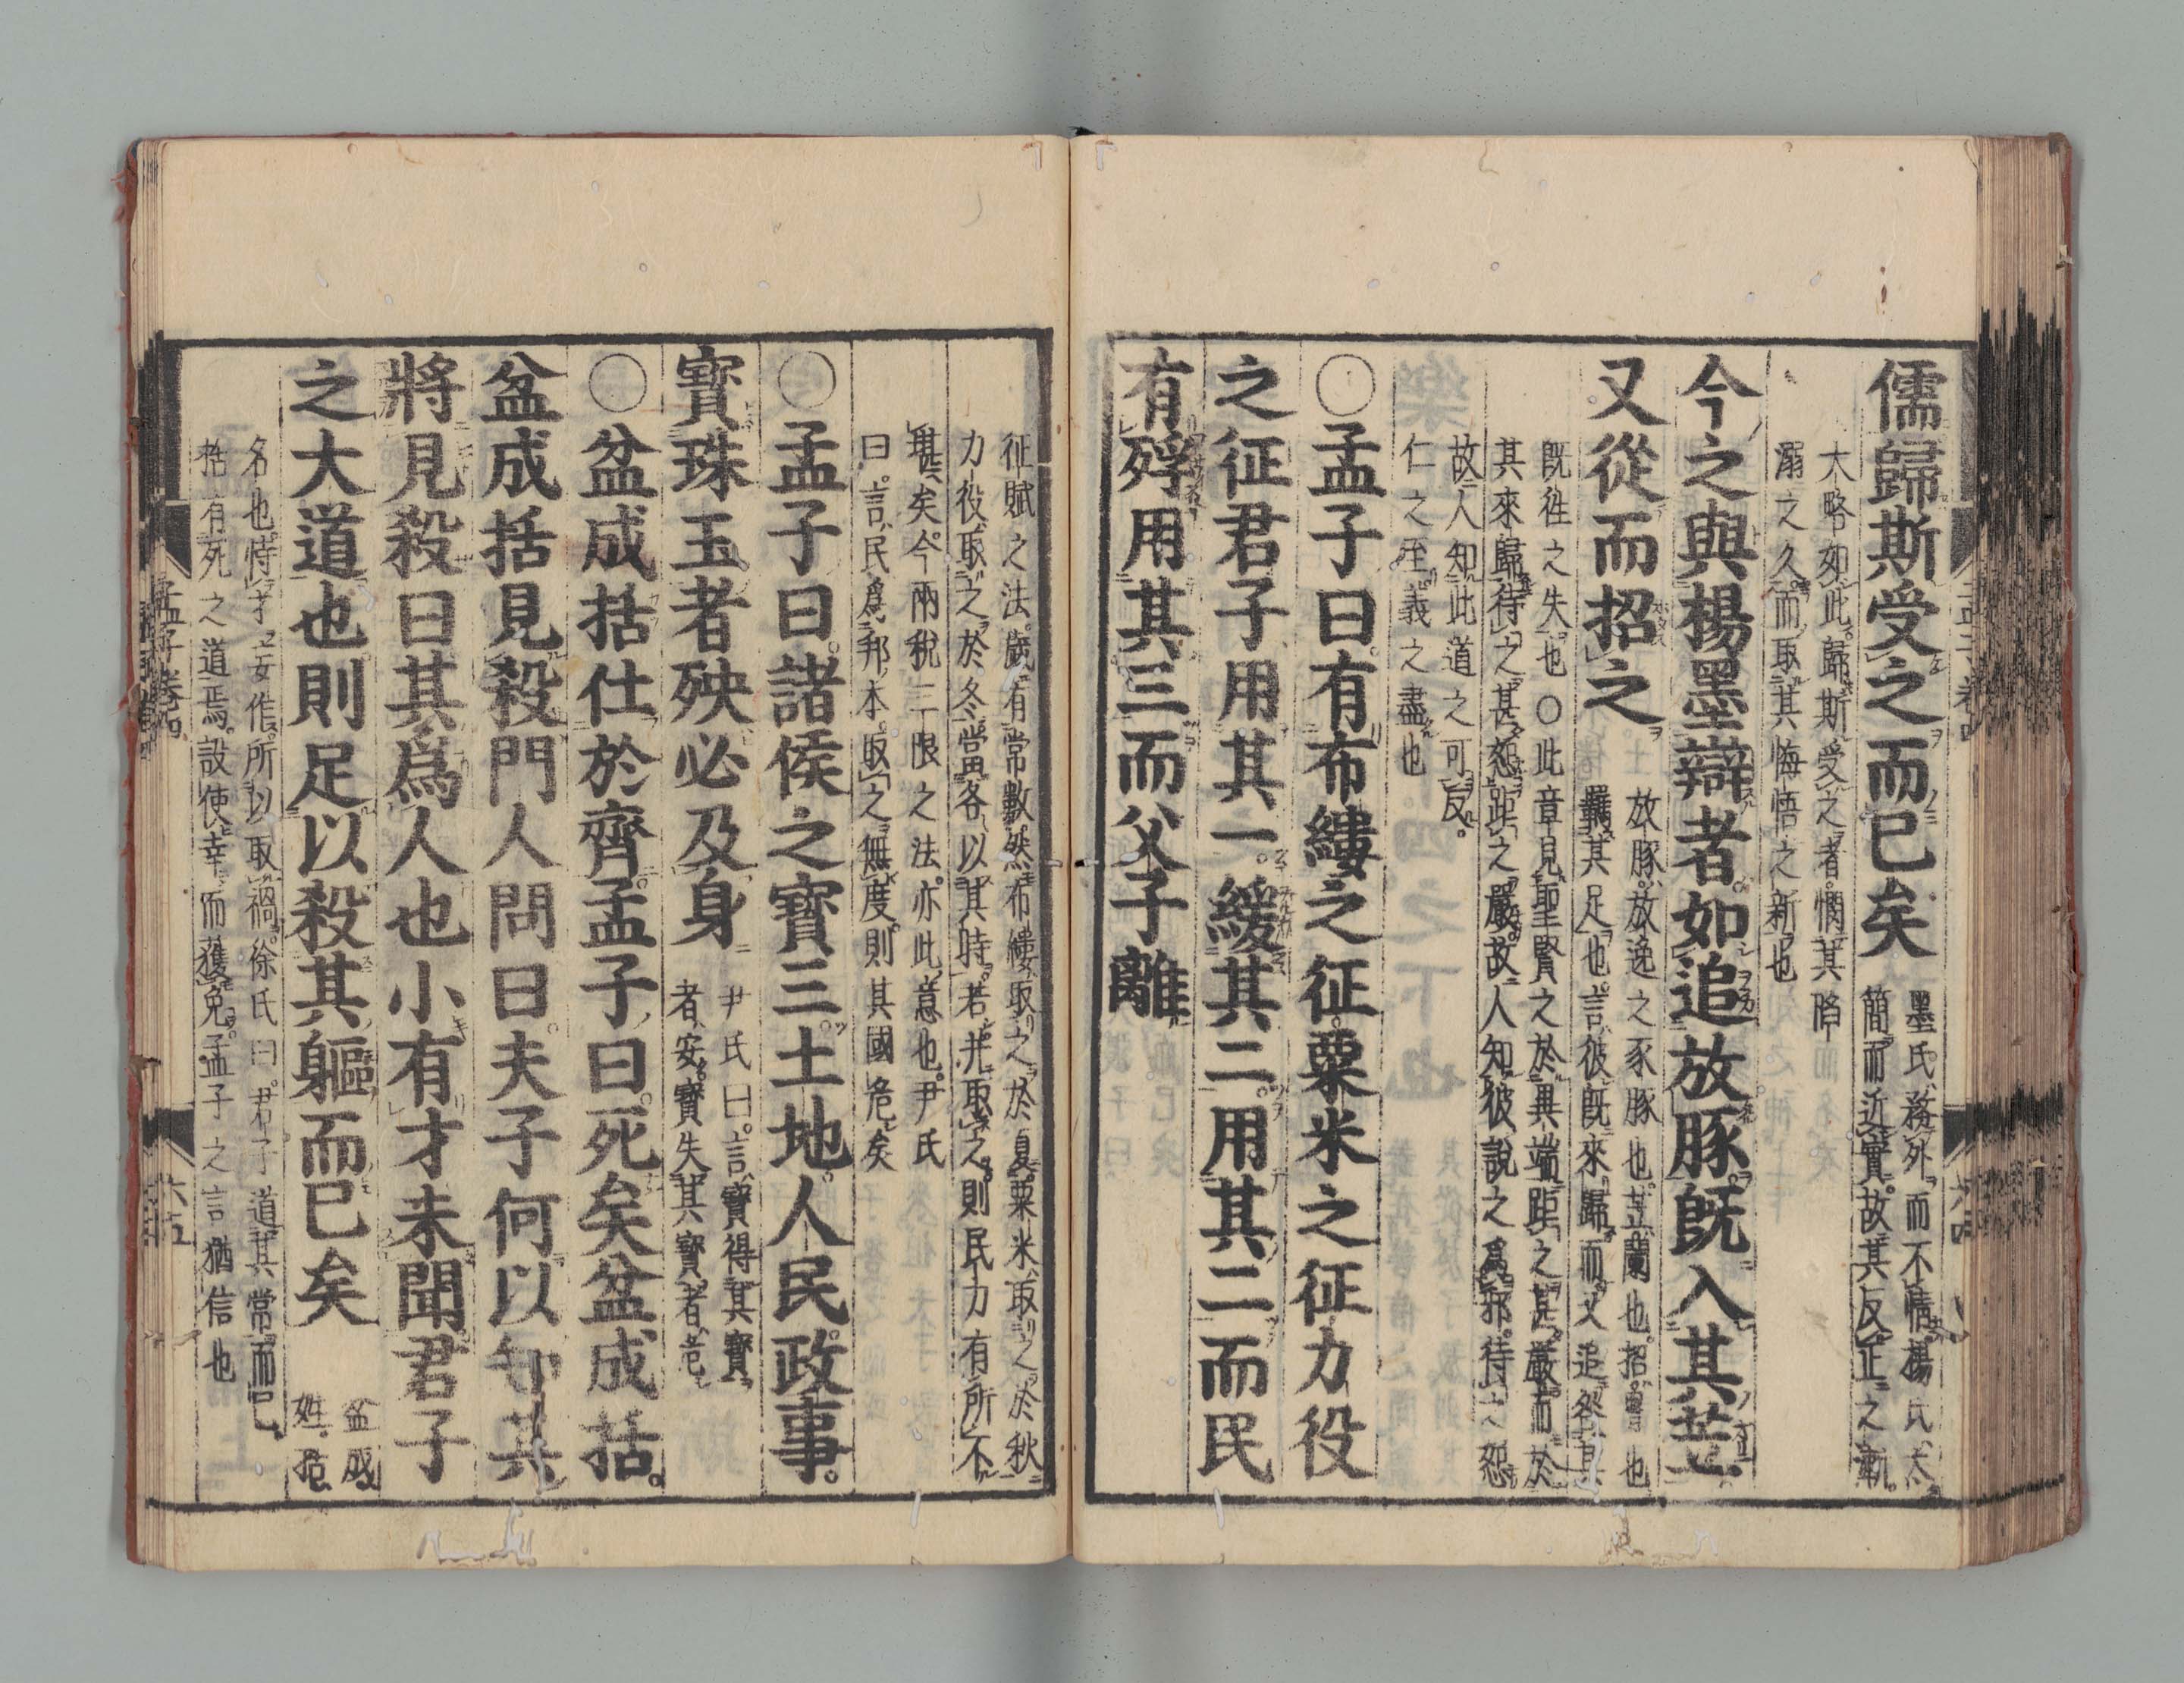 儒歸斯受之而已矣
墨氏務外而不情楊氏太
簡而近實故其反正之漸
大略如此歸斯受之者憫其陷
溺之久而取其悔悟之新也
今之與楊墨辯者如追放豚既入其苙
又從而招之
放豚放逸之豕豚也苙蘭也招罥也
羈其足也言彼既來歸而又追咎其
既往之失也○此章見聖賢之於異端距之甚嚴而於
其來歸待之甚恕距之嚴故人知彼說之爲邪待之恕
故人知此道之可反
仁之至義之盡也
○孟子曰有布縷之征粟米之征力役
之征君子用其一緩其二用其二而民
有殍用其三而父子離
征賦之法歲有常數然布縷取之於夏粟米取之於秋
力役取之於冬當各以其時若并取之則民力有所不
堪矣今兩稅三限之法亦此意也尹氏
曰言民爲邦本取之無度則其國危矣
○孟子曰諸侯之寶三土地人民政事
寶珠玉者殃必及身
尹氏曰言寶得其寶
者安寶失其寶者危
○盆成括仕於齊孟子曰死矣盆成括
盆成括見殺門人問曰夫子何以知其
將見殺曰其爲人也小有才未聞君子
之大道也則足以殺其軀而已矣
盆成
姓括
名也恃才妄作所以取禍徐氏曰君子道其常而已
括有死之道焉設使幸而獲免孟子之言猶信也
孟子卷四
六十五